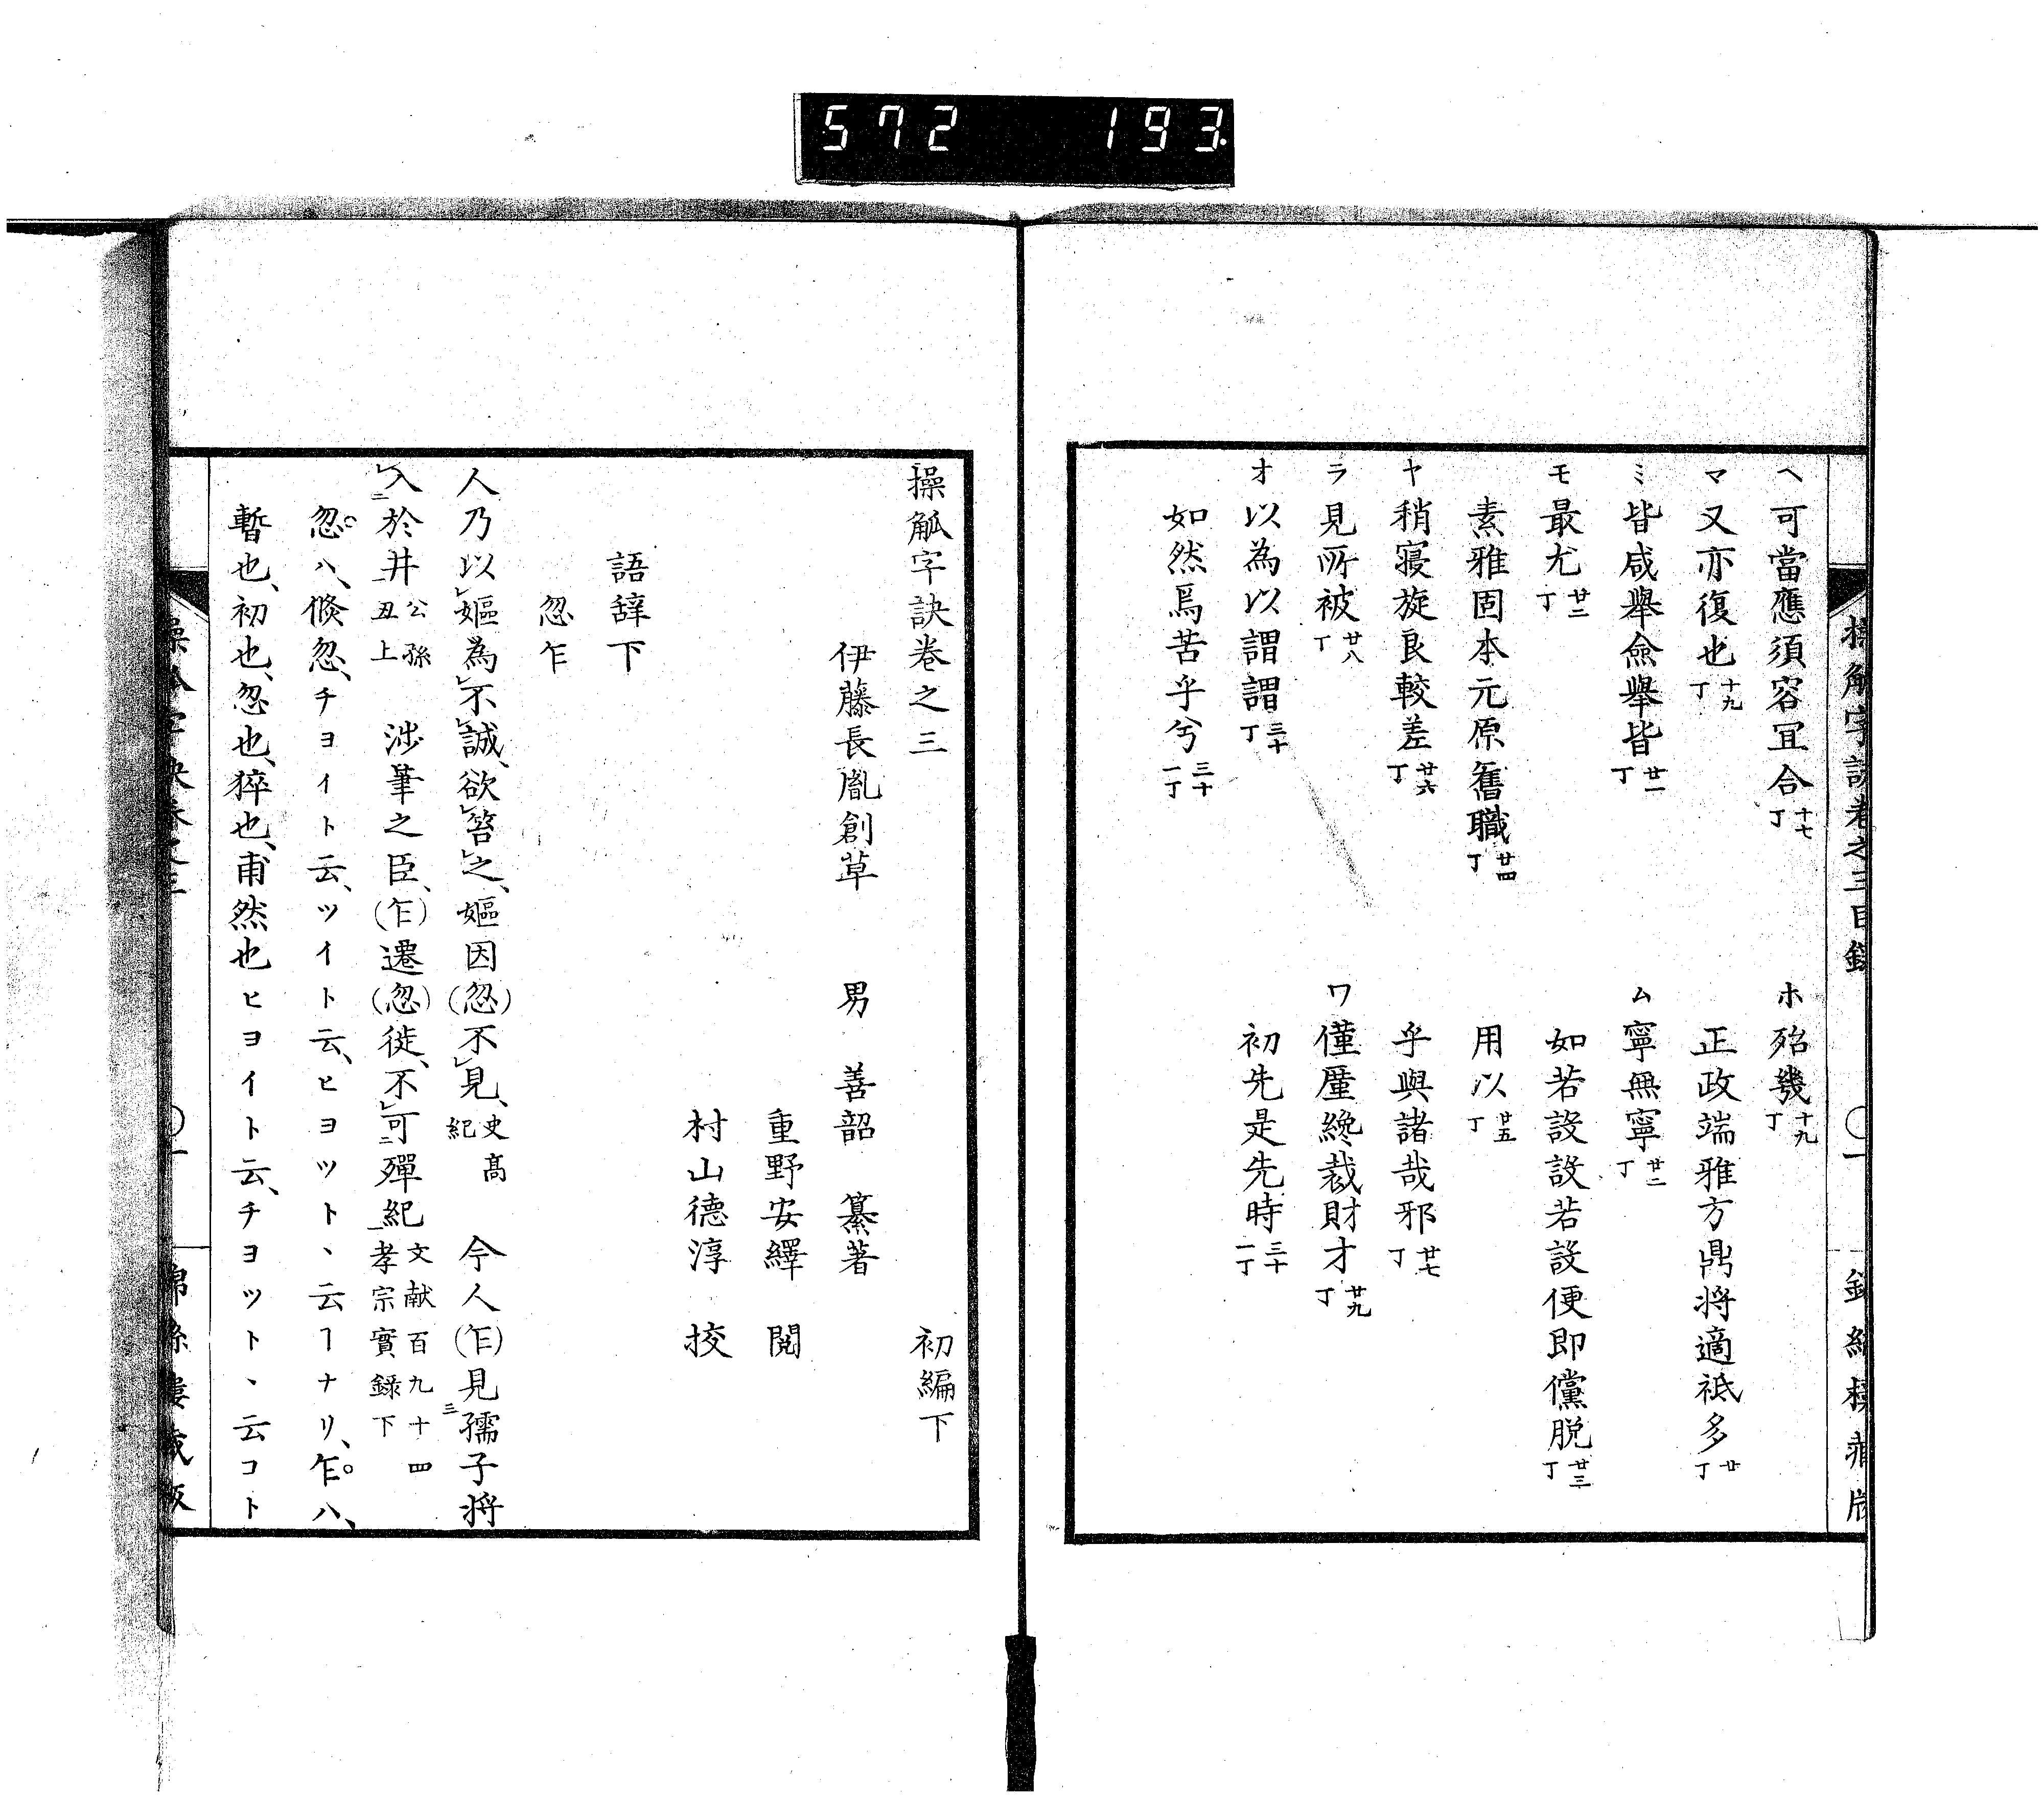 572 193
操觚字訣卷之三目錄 〇一
ヘ 可當應須容宜合 十七丁 ホ 殆幾 十九丁
マ 又亦復也 十九丁 正政端雅方鼎将適祗多 廿丁
ミ 皆咸舉僉舉皆 廿一丁 ム 寧無寧 廿二丁
モ 最尤 廿二丁 如若設設若設便即儻脱 廿三丁
素雅固本元原舊職 廿四丁 用以 廿五丁
ヤ 稍寖旋良較差 廿六丁 乎與諸哉邪 廿七丁
ラ 見所被 廿八丁 ワ 僅厪纔裁財才 廿九丁
オ 以為以謂謂 三十丁 初先是先時 三十一丁
如然焉苦乎兮 三十一丁
操觚字訣卷之三 初編下
伊藤長胤創草 男 善韶 纂著
重野安繹 閲
村山德淳 挍
語辞下
忽乍
人乃以嫗為不誠、欲笞之、嫗因(忽)不見、史高紀 今人(乍)見孺子将
入於井 公孫丑上 涉筆之臣、(乍)遷(忽)徙、不可殫紀 文献百九十四孝宗實録下
忽ハ、倐忽、チヨイト云、ツイト云、ヒヨツト、云ヿナリ、乍ハ、
暫也、初也、忽也、猝也、甫然也ヒヨイト云、チヨツト、云コト